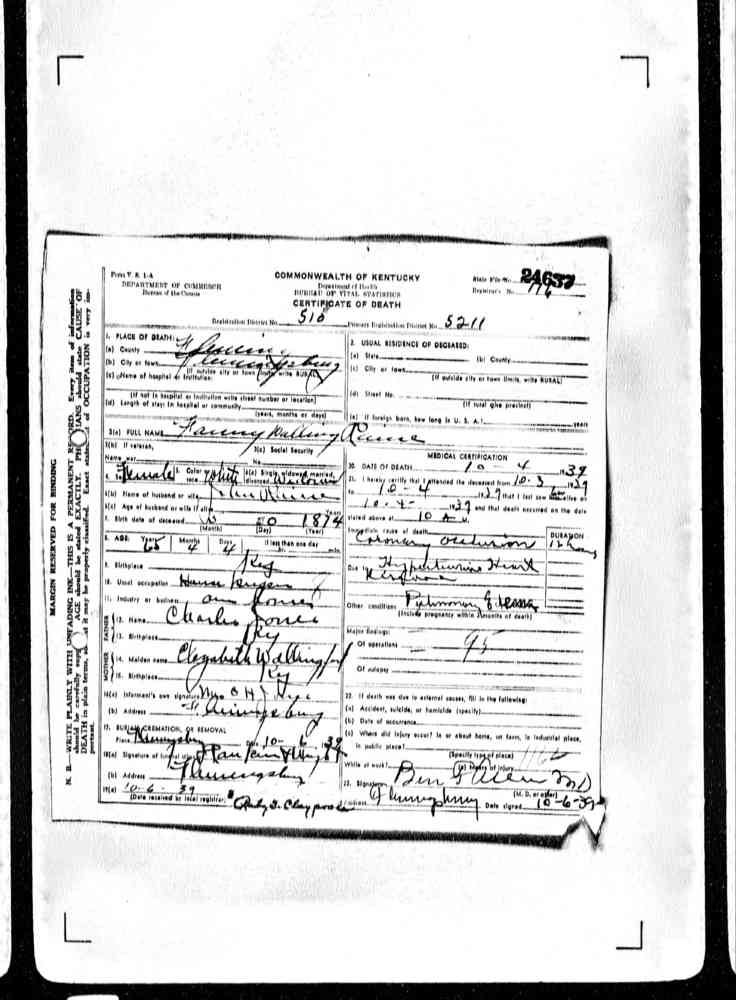 Form V. S. 1-A
DEPARTMENT OF COMMERCE
Bureau of the Census
COMMONWEALTH OF KENTUCKY
Department of Health
BUREAU OF VITAL STATISTICS
CERTIFICATE OF DEATH
State File No. 24637
Registrar's No. 116
Registration District No. 510
Primary Registration District No. 5211
MARGIN RESERVED FOR BINDING
N. B.—WRITE PLAINLY WITH UNFADING INK—THIS IS A PERMANENT RECORD. Every item of information
should be carefully AGE should be stated EXACTLY. should state CAUSE OF
DEATH in plain terms, it may be properly classified. Exact of OCCUPATION is very im-
portant.
1. PLACE OF DEATH:
(a) County Fleming
(b) City or town Flemingsburg
(If outside city or town limits, write RURAL)
(c) Name of hospital or institution:
(If not in hospital or institution write street number or location)
(d) Length of stay: In hospital or community
(years, months or days)
3(a) FULL NAME Fanny Walling
3(b) If veteran,
Name war
3(c) Social Security
No.
4. Sex Female 5. Color or race White 6(a) Single, widowed, married, divorced Widowed
6(b) Name of husband or wife John
6(c) Age of husband or wife if alive Years
7. Birth date of deceased 1874
(Month) (Day) (Year)
8. AGE: Years 65 Months 4 Days 4 If less than one day
hr. min.
9. Birthplace Ky
10. Usual occupation House Keeper
11. Industry or business own home
FATHER
12. Name Charles Jones
13. Birthplace Ky
MOTHER
14. Maiden name Elizabeth Wallingford
15. Birthplace Ky
16(a) Informant's own signature Mrs
(b) Address Flemingsburg
17. BURIAL, CREMATION, OR REMOVAL
Place Flemingsburg Date 10-6 1939
18(a) Signature of funeral director
(b) Address Flemingsburg
19(a) 10-6-39
(Date received by local registrar) Ruby S. Claypoole
2. USUAL RESIDENCE OF DECEASED:
(a) State (b) County
(c) City or town
(If outside city or town limits, write RURAL)
(d) Street No.
(If rural give precinct)
(e) If foreign born, how long in U. S. A.? years
MEDICAL CERTIFICATION
20. DATE OF DEATH 10-4 1939
21. I hereby certify that I attended the deceased from 10-3 1939
to 10-4 1939 that I last saw her alive on
10-4- 1939 and that death occurred on the date
stated above at 10 A M.
Immediate cause of death
Coronary occlusion
DURATION
12 hours
Due to Hypertensive Heart
Other conditions Pulmonary Edema
(Include pregnancy within 3 months of death)
Major findings:
Of operations
95
Of autopsy
22. If death was due to external causes, fill in the following:
(a) Accident, suicide, or homicide (specify)
(b) Date of occurrence
(c) Where did injury occur? In or about home, on farm, in industrial place,
in public place?
(Specify type of place)
While at work? (e) Means of injury
23. Signature Ben F Allen MD
(M. D. or other)
Address Flemingsburg Date signed 10-6-39